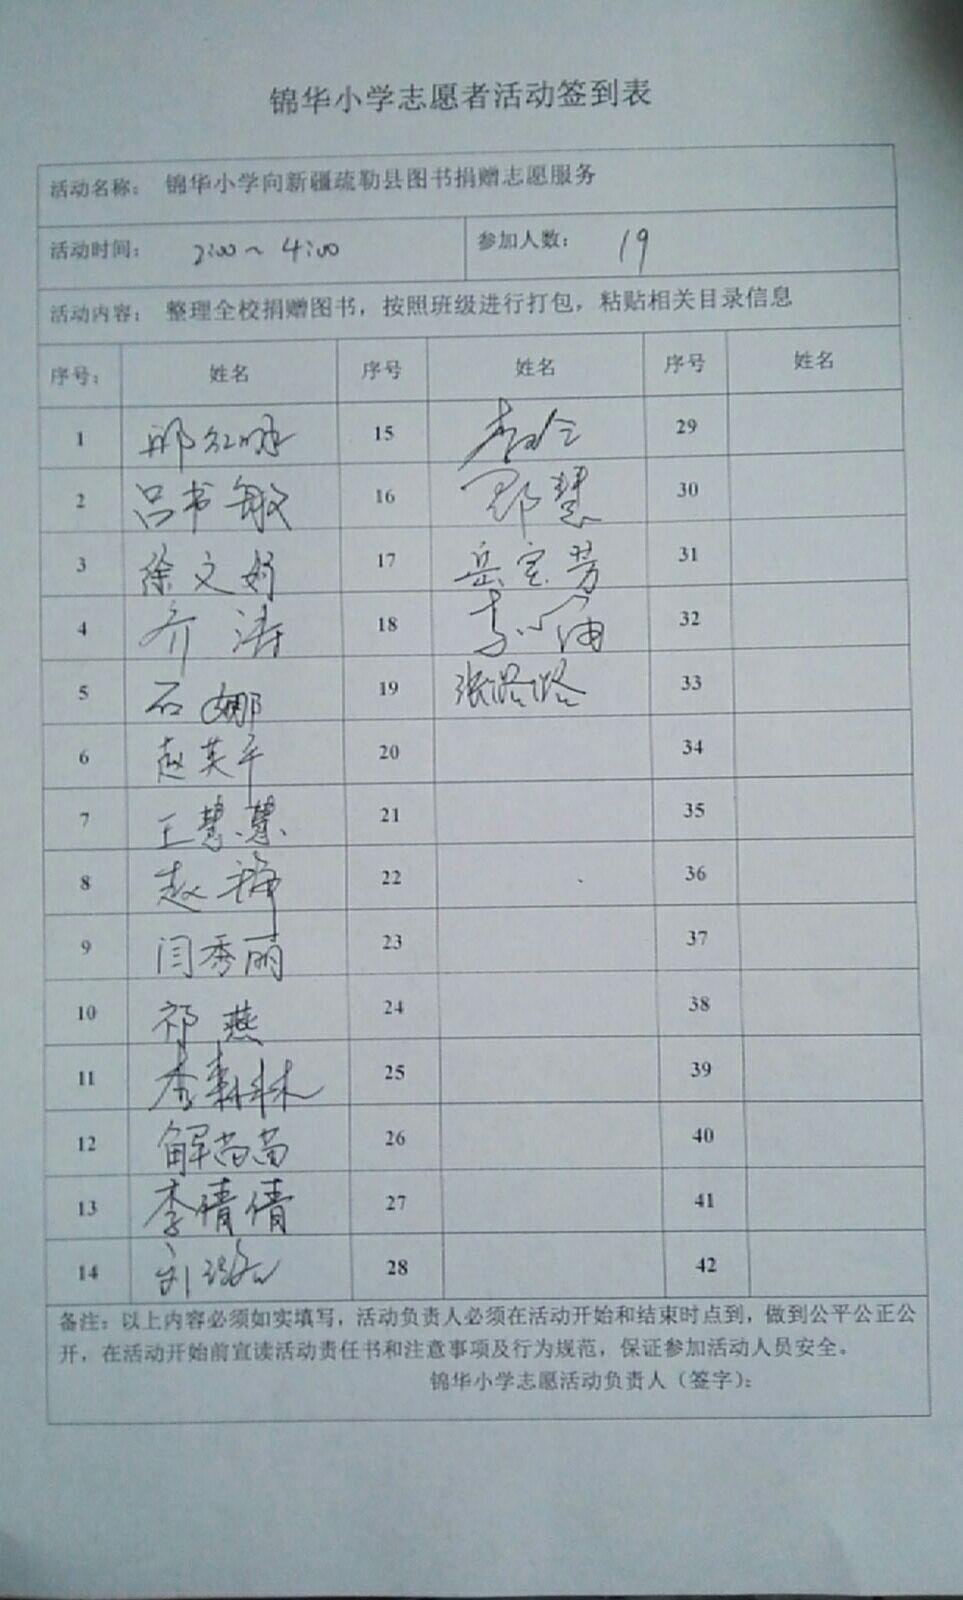 锦华小学志愿者活动签到表
活动名称： 锦华小学向新疆疏勒县图书捐赠志愿服务
活动时间： 2:00～4:00 参加人数： 19
活动内容： 整理全校捐赠图书，按照班级进行打包，粘贴相关目录信息
序号： 姓名 序号 姓名 序号 姓名
1 15 29
2 吕书敏 16 慧 30
3 徐文娟 17 岳宝芳 31
4 齐涛 18 32
5 石娜 19 张路路 33
6 赵英平 20 34
7 王慧慧 21 35
8 赵 22 36
9 闫秀丽 23 37
10 祁燕 24 38
11 李 25 39
12 解苗苗 26 40
13 李倩倩 27 41
14 刘 28 42
备注：以上内容必须如实填写，活动负责人必须在活动开始和结束时点到，做到公平公正公
开，在活动开始前宣读活动责任书和注意事项及行为规范，保证参加活动人员安全。
锦华小学志愿活动负责人（签字）：